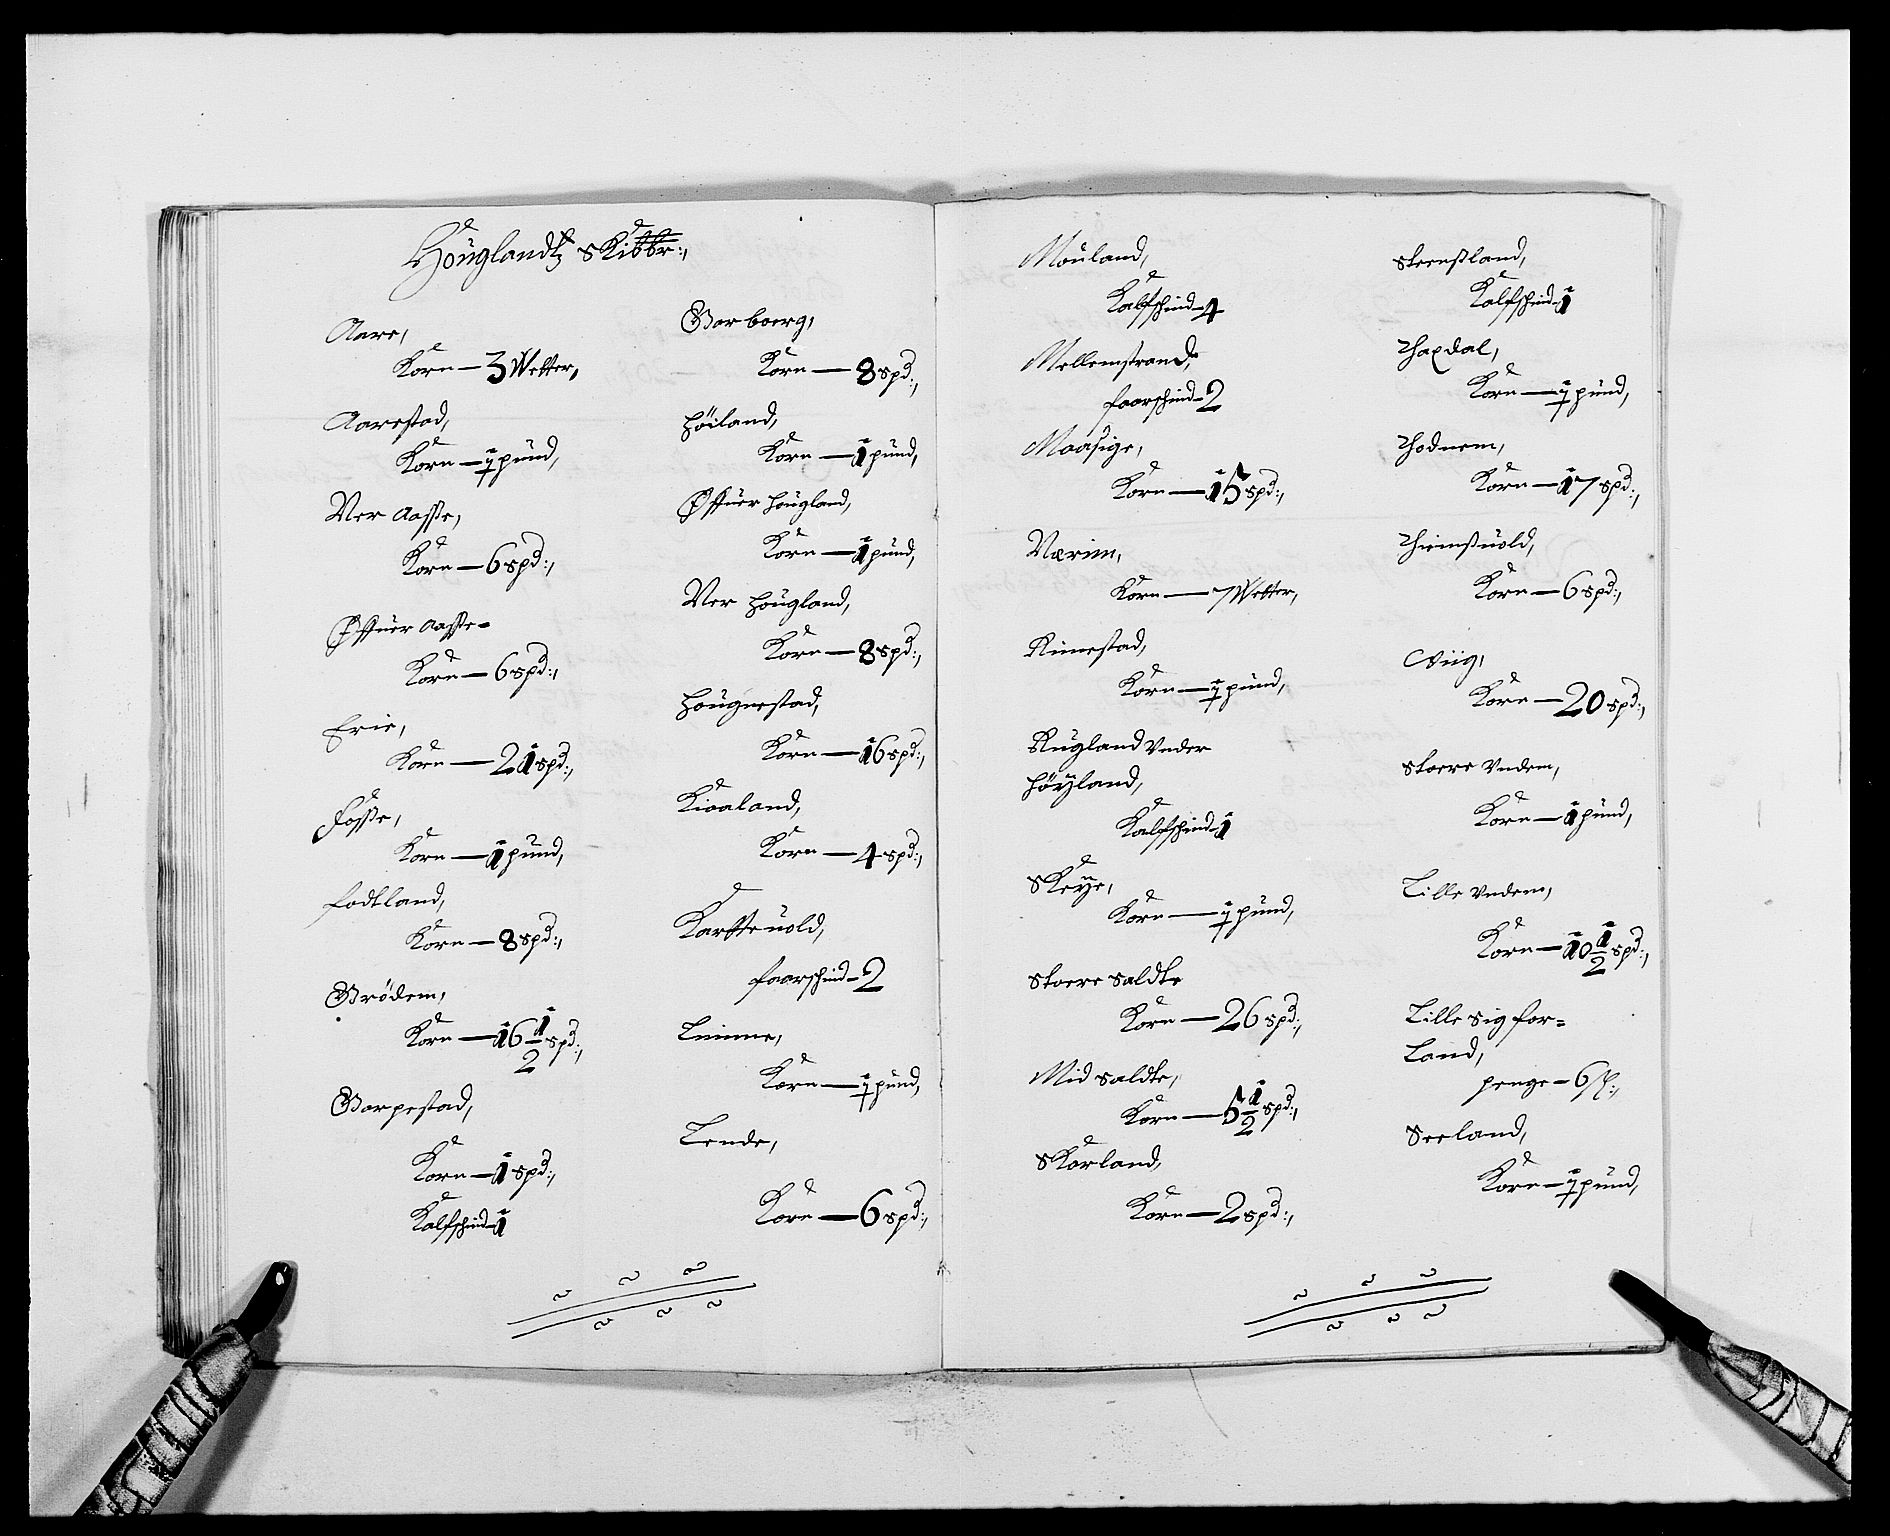 Höuglandtz Skibbr:,
Aare,
Korn — 3 Wetter,
Aarestad,
Korn — 1 pund,
Ner Aasse,
Korn — 6 spd:,
Øffuer Aasse =
Korn — 6 spd:,
Erie,
Korn — 21 spd:,
Fosse,
Korn — 1 pund,
Fodtland,
Korn — 8 spd:,
Grödem,
Korn — 16 1/2 spd:,
Garpestad,
Korn — 1 spd:,
Kalfschind - 1
Gorboerg,
Korn — 8 spd:,
Höiland,
Korn — 1 pund,
Øffuer Höugland,
Korn — 1 pund,
Ner Höugland,
Korn — 8 spd:,
Höugnestad,
Korn — 16 spd:,
Kioaland,
Korn — 4 spd:,
Kartteuold,
faarschind - 2
Linime,
Korn — 1 pund,
Lende,
Korn — 6 spd:,
Mouland,
Kalfschind - 4
Mellemstrand,
faarschind - 2
Maasige,
Korn — 15 spd:,
Nærim,
Korn — 7 Wetter,
Rimestad,
Korn — 1 pund,
Rugland Vnder
Höÿland,
Kalfschind - 1
Skeÿe,
Korn — 1 pund,
Stoere Saldte
Korn — 26 spd:,
Mid Saldte,
Korn — 5 1/2 spd:,
Skorland,
Korn — 2 spd:,
Steensland,
Kalfschind - 1
Thaxdal,
Korn — 1 pund,
Thodnem,
Korn — 17 spd:,
Thiemsuold,
Korn — 6 spd:,
Viig,
Korn — 20 spd:,
Stoere Vndem,
Korn — 1 pund,
Lille Vndem,
Korn — 10 1/2 spd:,
Lille Sigfor =
Land,
penge — 6 ß:,
Seeland,
Korn — 1 pund,